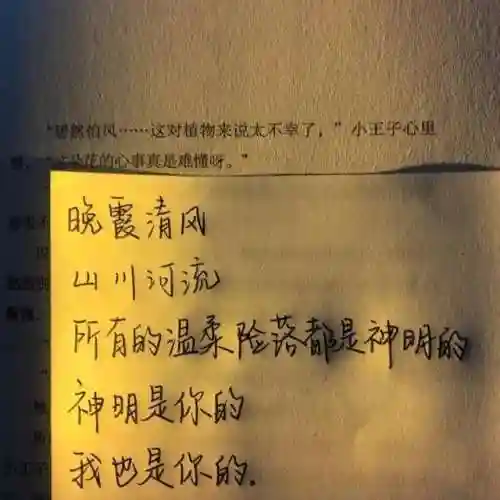 “居然怕风……这对植物来说太不幸了，”小王子心里
花的心事真是难懂呀。”
晚霞清风
山川河流
所有的温柔险落都是神明的
神明是你的
我也是你的.